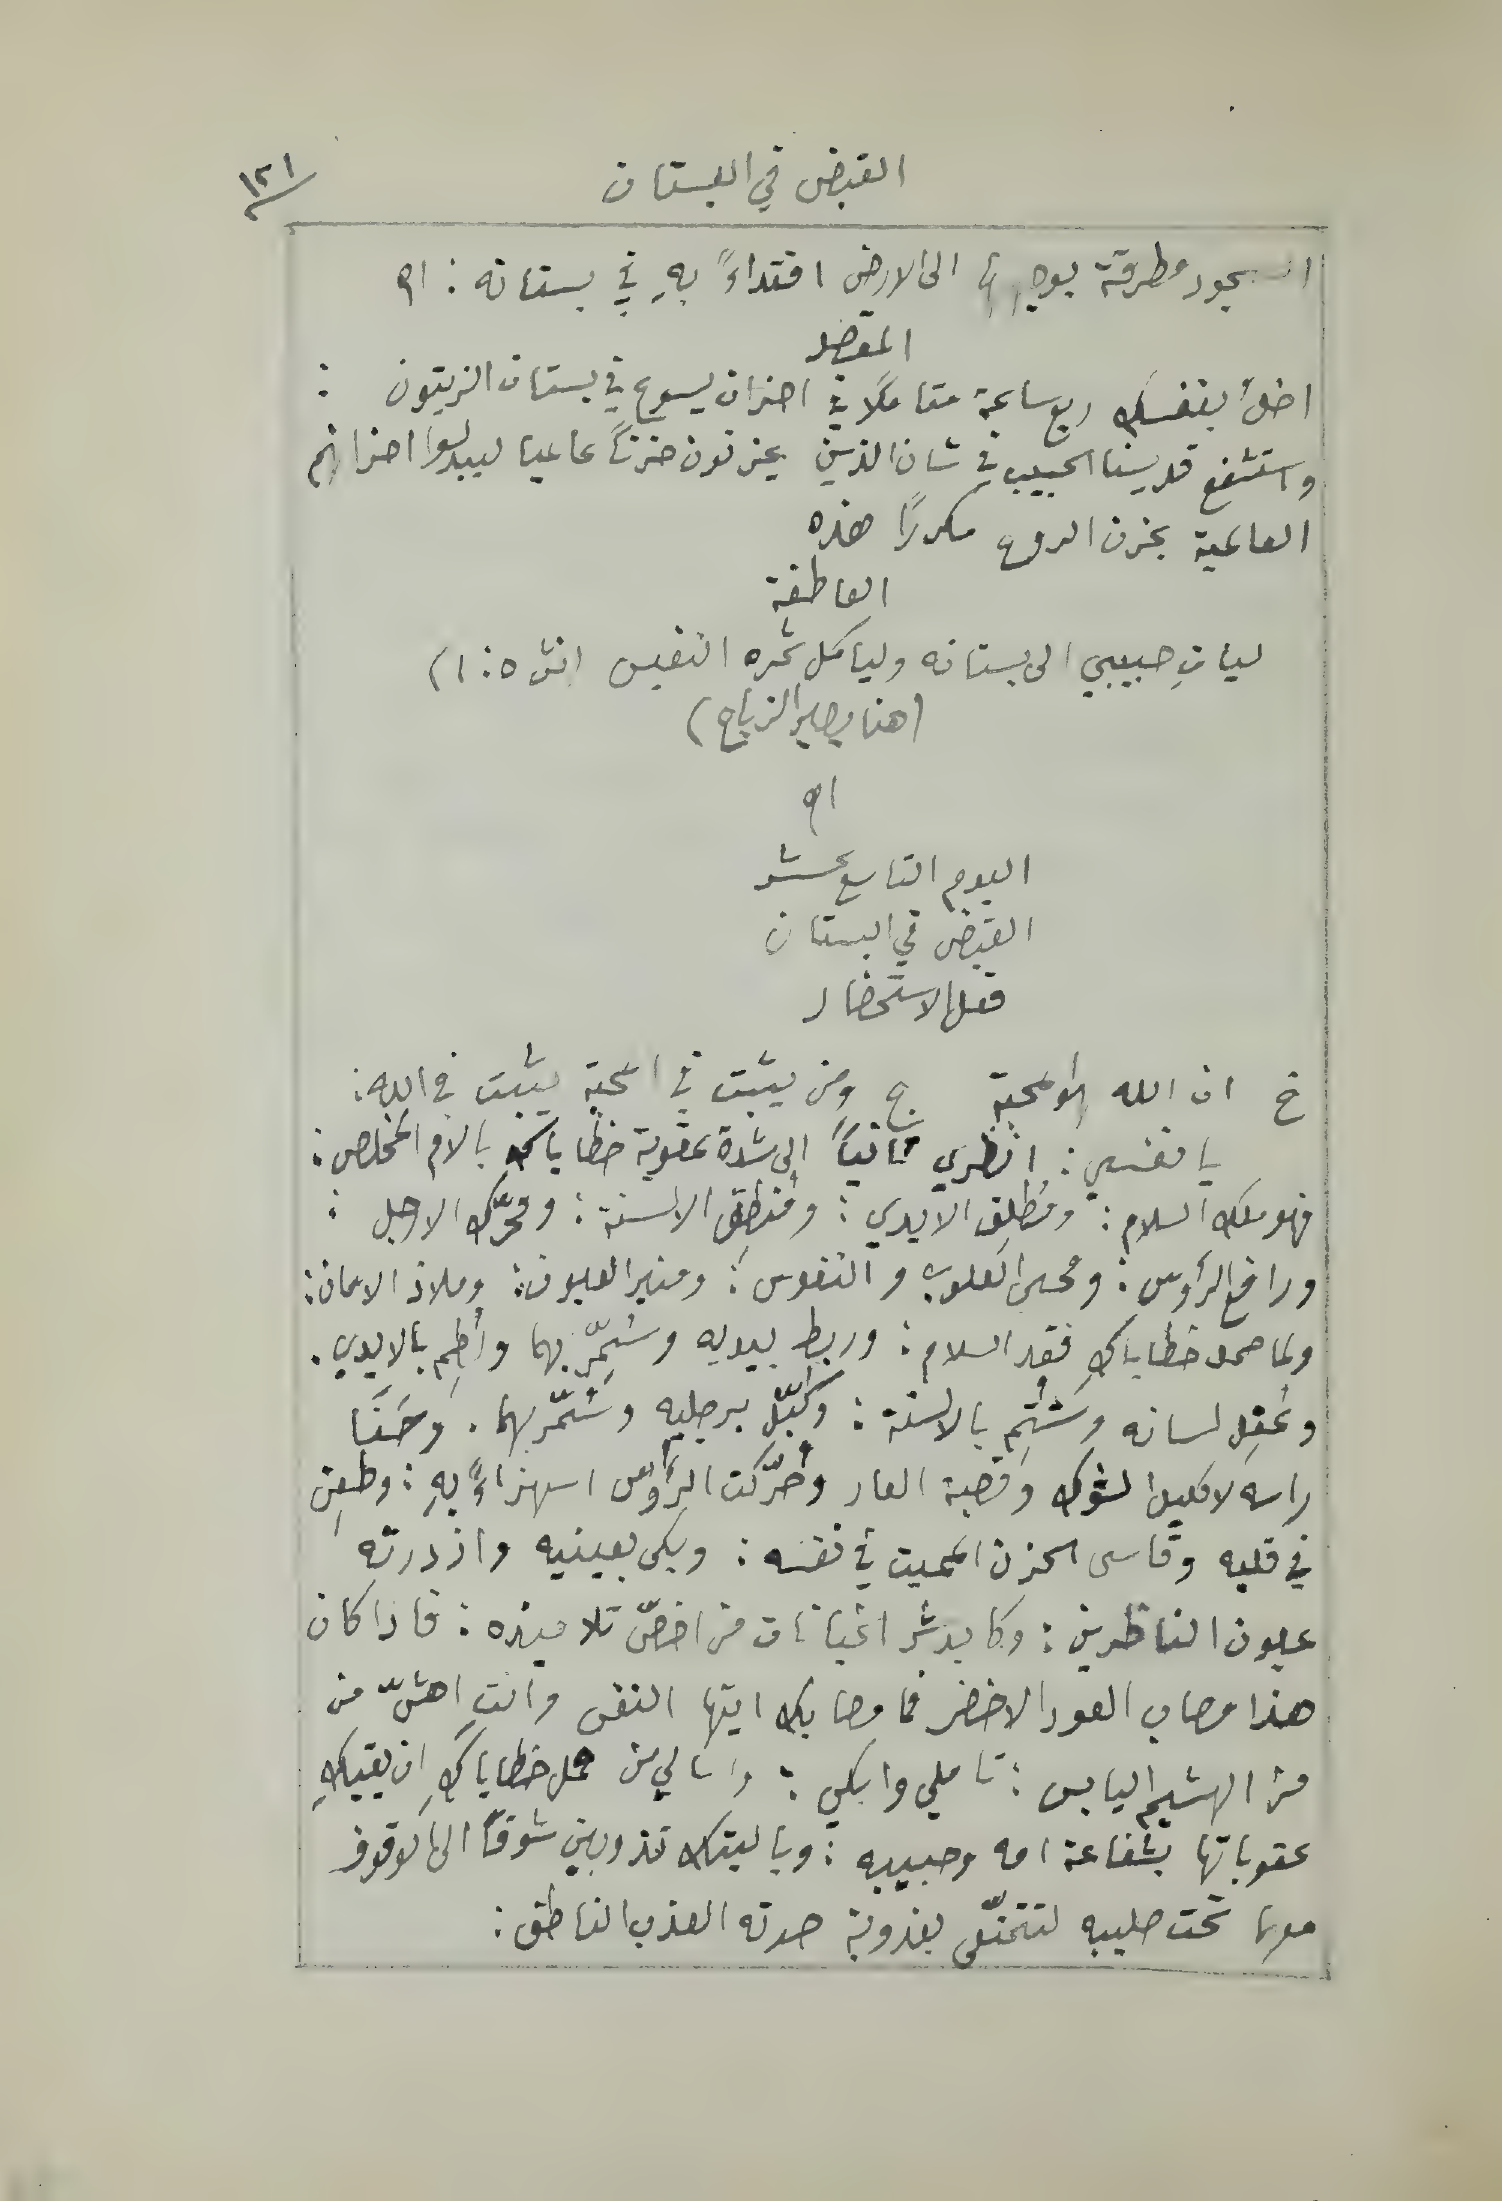 القبض في البستان
١٢١
السجود مطرقة بوجهها الى الارض اقتداءً بهِ في بستانه : اه
المقصد
اخلُ بنفسك ربع ساعة متاملًا في احزان يسوع في بستان الزيتون :
واستشفع قديسنا الحبيب في شان الذين يحزنون حزنًا عالميا ليبدلوا احزانهم
العالمية بحزن الروح مكررًا هذه
العاطفة
ليات حبيبي الى بستانه ولياكل ثمره النفيس (نش ٥ : ١)
(هنا يصير الزياح)
اه
اليوم التاسع عشر
القبض في البستان
فعل الاستحضار
خ ان الله هو المحبة ج ومن يثبت في المحبة يثبت في الله :
يا نفسي : انظري ثانيًا الى شدة عقوبة خطاياكِ بالام المخلص :
فهو ملك السلام : ومُطلِق الايدي : ومُنطِق الالسنة : ومحرّك الارجل :
ورافع الرأوس : ومحيى القلوب والنفوس : ومنير العيون : وملاذ الايمان :
ولما حمل خطاياكِ فقد السلام : وربط بيديه وسُمِّر بهما ولُطِم بالايدي .
وعُقِل لسانه وشُتِم بالالسنة : وكُبّل برجليه وسُمّر بهما . وحَنَا
راسه لاكليل الشوك وقصبة العار وحُرّكت الرأوس استهزاءً بهِ : وطُعِن
في قلبه وقاسى الحزن المميت في نفسه : وبكى بعينيه وازدرته
عيون الناظرين : وكابد شر الخيانات من اخصّ تلاميذه : فاذا كان
هذا مصاب العود الاخضر فما مصابك ايتها النفس وانتِ اهشّ من
من الهشيم اليابس : تاملي وابكي : واسالي من حمل خطاياكِ ان يقيكِ
عقوباتها بشفاعة امه وحبيبه : ويا ليتك تذوبين شوقًا الى الوقوف
معهما تحت صليبه لتتمتّعى بعذوبة صوته العذب الناطق :